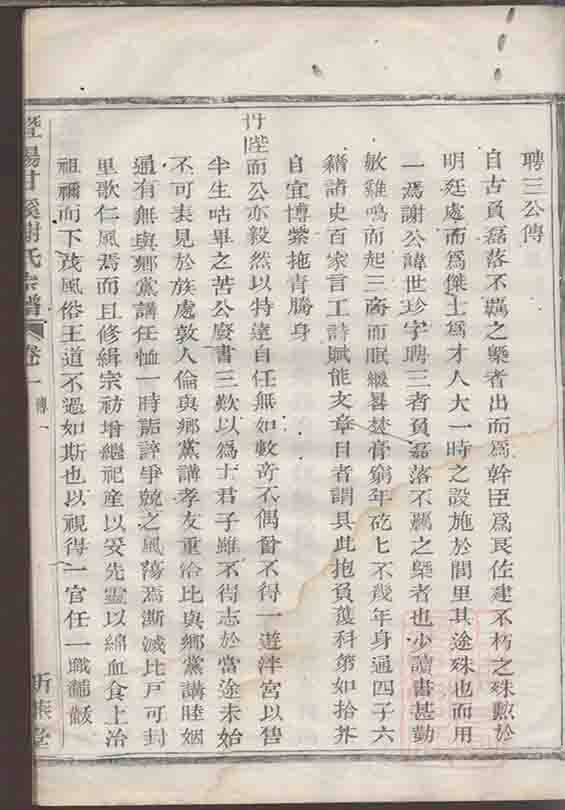 聘三公傳
自古負磊落不覊之槩者出而爲幹臣爲良佐建不朽之殊勲於
明廷處而爲傑士爲才人大一時之設施於閭里其途殊也而用
一焉謝公諱世珍字聘三者負磊落不覊之槩者也少讀書甚勤
敏雞鳴而起三商而眠繼晷焚膏窮年矻匕不幾年身通四子六
籍諸史百家言工詩賦能文章目者謂具此抱負蔓科第如拾芥
自宜博紫拖青勝身
丹陛而公亦毅然以特達自任無如數竒不偶曾不得一遊泮宮以舒
半生呫畢之苦公廢書三歎以爲士君子雖不得志於當途未始
不可表見於族處敦人倫與鄉黨講孝友重洽比與鄉黨講睦婣
通有無與鄉黨講任恤一時詬誶爭競之風蕩焉澌滅比戸可封
里歌仁風焉而且修緝宗祊增繼祀産以妥先靈以綿血食上治
祖禰而下茂風俗王道不過如斯也以視得一官任一職黼黻
暨陽甘溪謝氏宗譜
卷一
傳
一